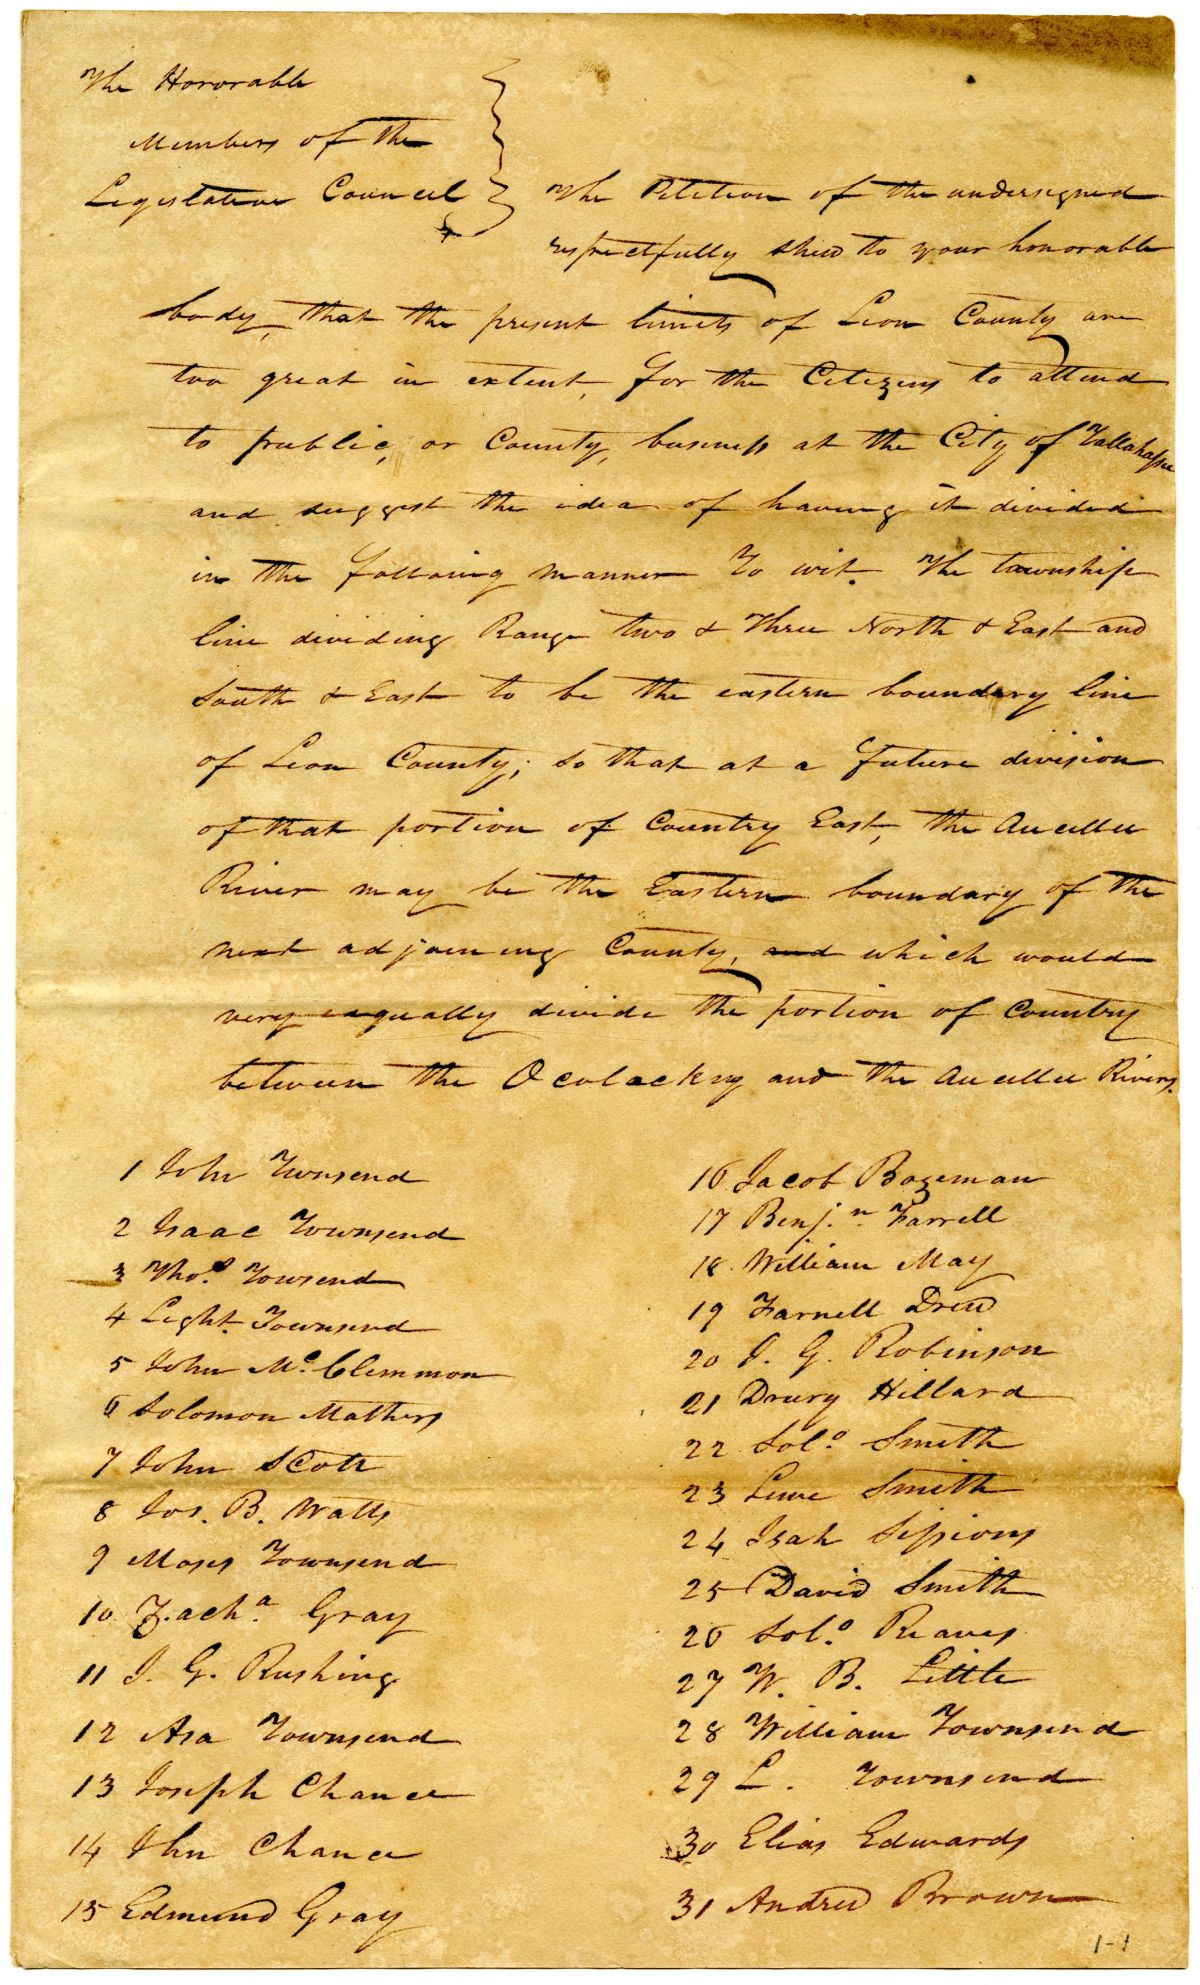 The Honorable
Members of the
Legislative Council
The Petition of the undersigned
respectfully shew to your honorable
body, that the present limits of Leon County are
too great in extent, for the Citizens to attend
to public, or County, business at the City of Tallahassee
and suggest the idea of having it divided
in the following manner To wit. The township
line dividing Range two & Three North & East and
South & East to be the eastern boundary line
of Leon County; so that at a future division
of that portion of Country East, the Aucilla
River may be the Eastern boundary of the
next adjoining County, and which would
very equally divide the portion of Country
between the Ocolackny and the Aucilla Rivers.
1 John Townsend
2 Isaac Townsend
3 Tho.s Towsend
4 Light. Townsend
5 John Mc. Clemmon
6 Solomon Mathers
7 John Scott
8 Jos. B. Watts
9 Moses Townsend
10 Zach.a Gray
11 J. G. Rushing
12 Asa Townsend
13 Joseph Chance
14 Jhn Chance
15 Edmund Gray
16 Jacob Bozeman
17 Benj.n Farrell
18 William May
19 Farnell Drew
20 J. G. Robinson
21 Drury Hillard
22 Sol.o Smith
23 Smith
24 Isah Sessions
25 David Smith
26 Sol.o Reaves
27 W. B. Little
28 William Townsend
29 L. Townsend
30 Elias Edwards
31 Andrew Brown
1-1